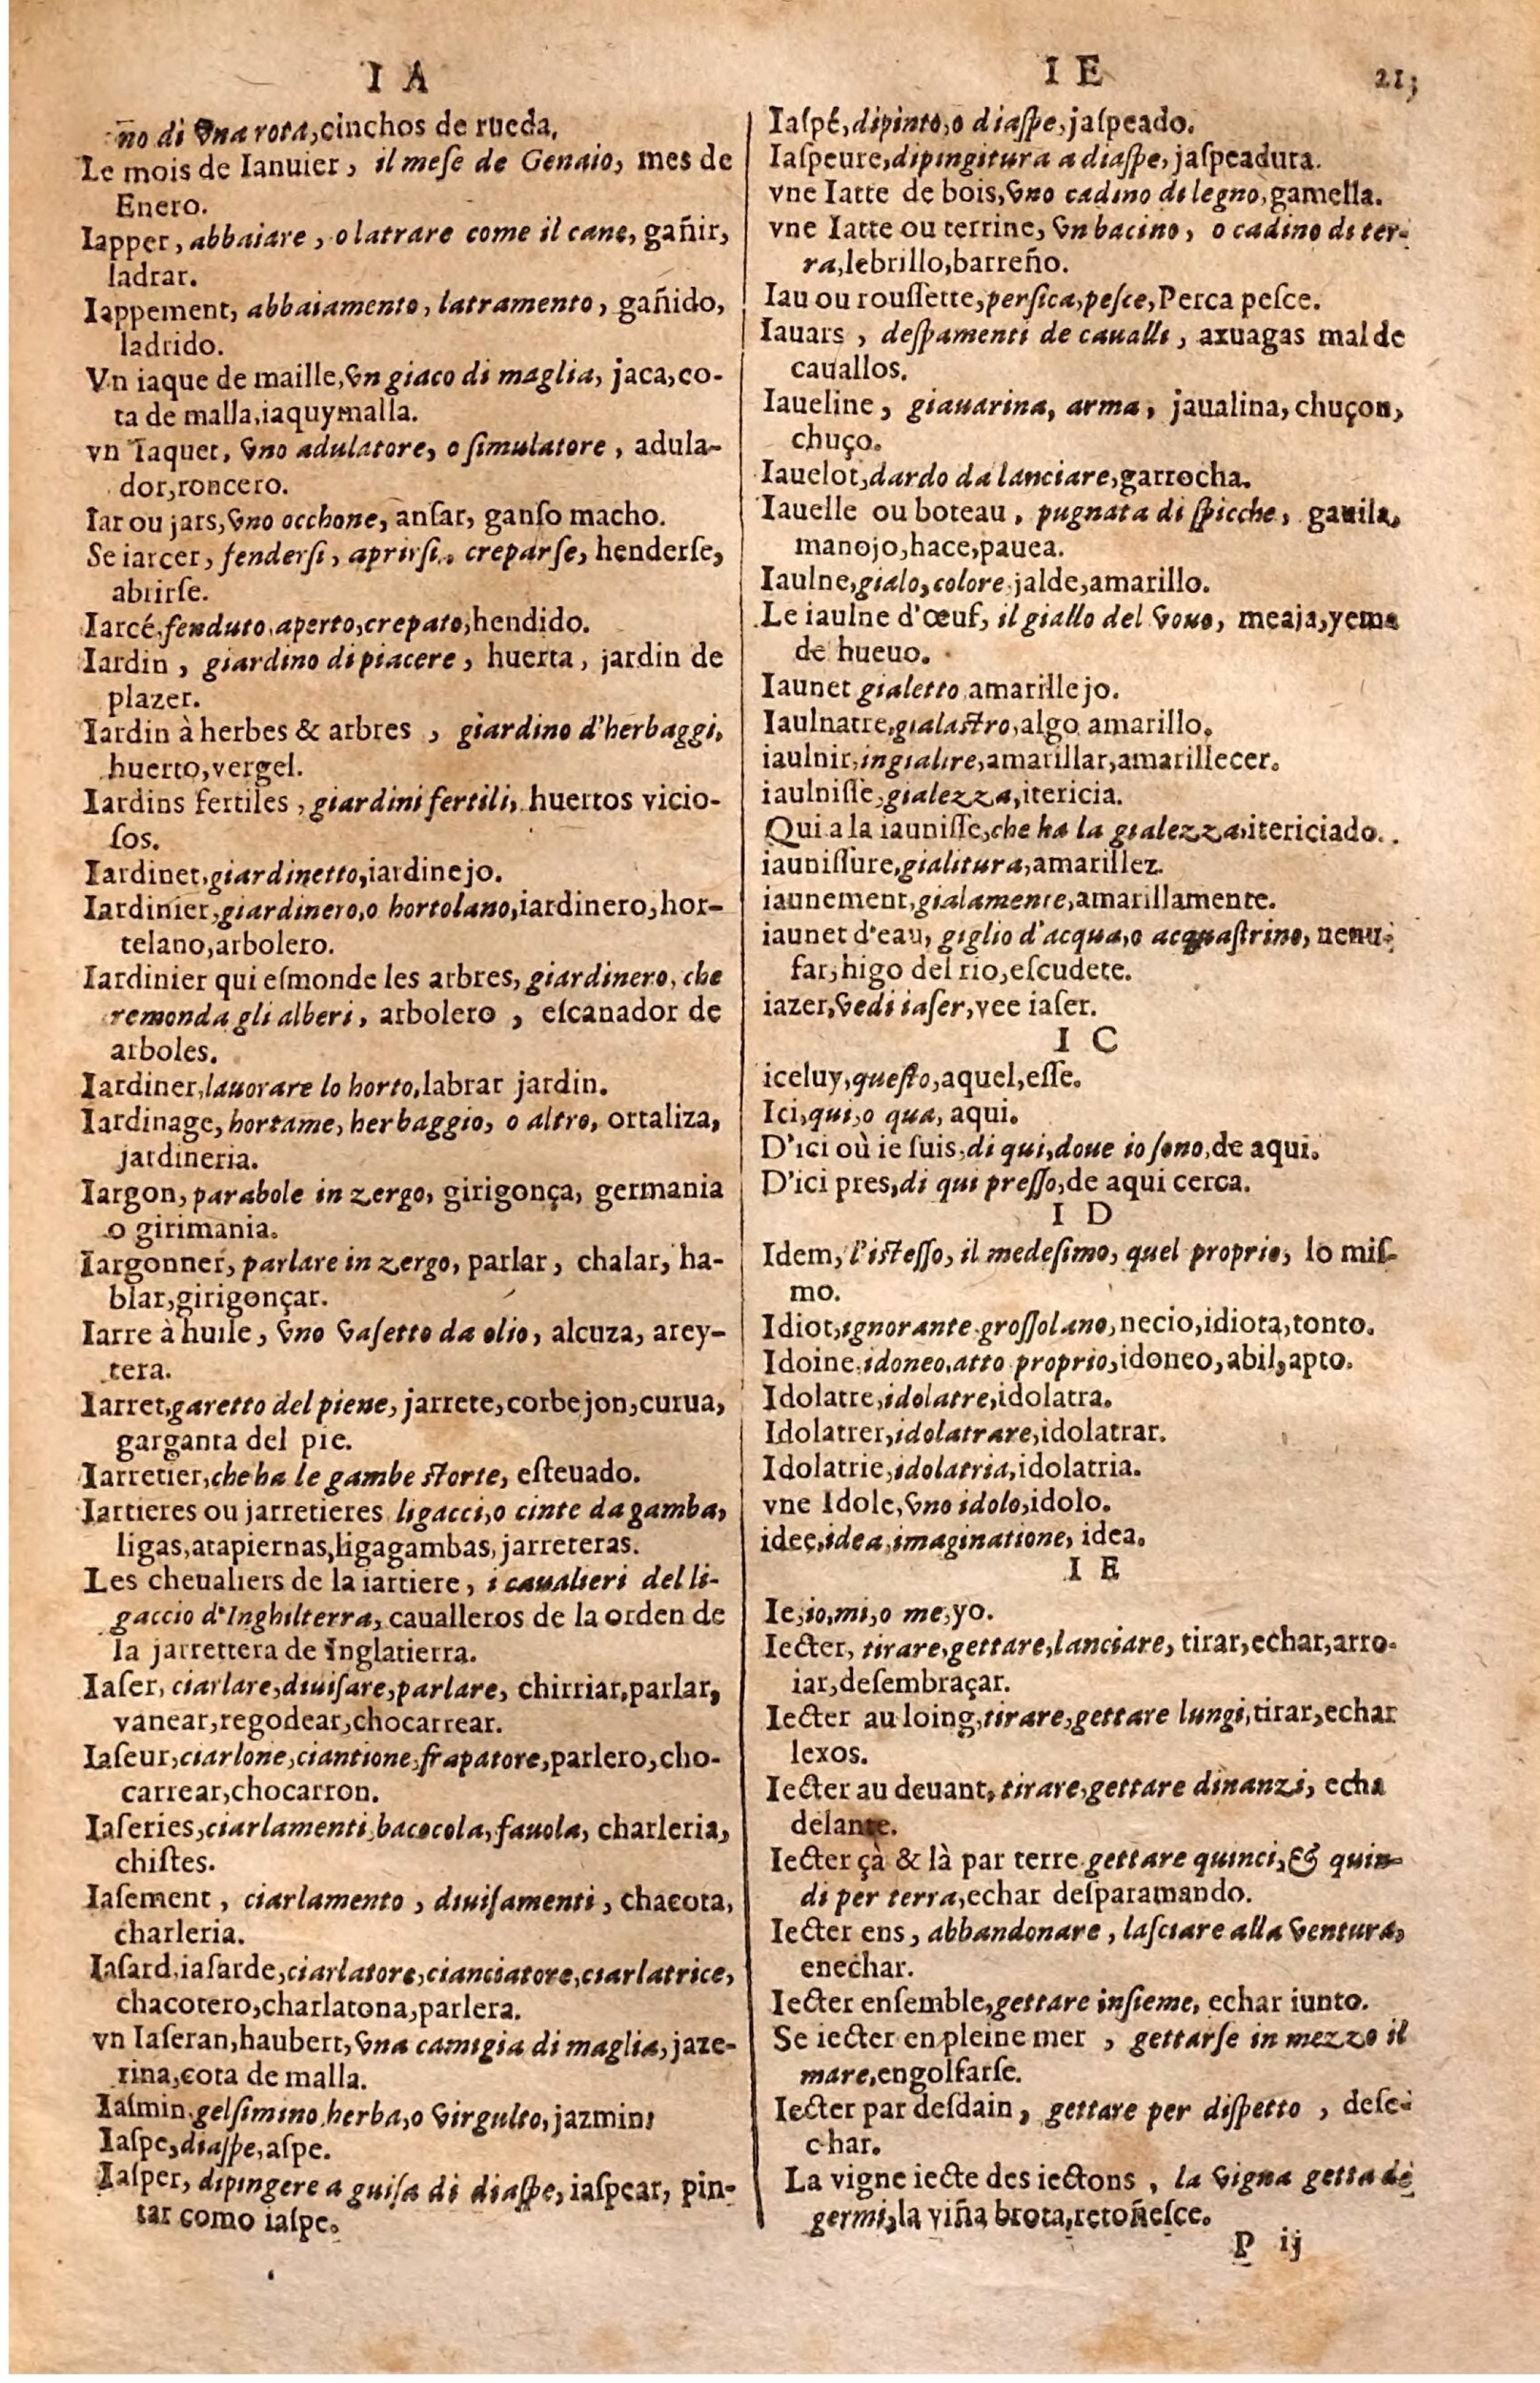 I A
I E
213
no di vna rota,cinchos de rueda.
Le mois de Ianuier, il meſe de Genaio, mes de
Enero.
Iapper, abbaiare, o latrare come il cane, gañir,
ladrar.
Iappement, abbaiamento, latramento, gañido,
ladrido.
Vn iaque de maille, vn giaco di maglia, jaca,co-
ta de malla,iaquymalla.
vn Iaquet, vno adulatore, o ſimulatore, adula-
dor,roncero.
Iar ou jars,vno occhone, anſar, ganſo macho.
Se iarcer, fenderſi, aprirſi, creparſe, henderſe,
abrirſe.
Iarcé,fenduto,aperto,crepato,hendido.
Iardin, giardino di piacere, huerta, jardin de
plazer.
Iardin à herbes & arbres, giardino d'herbaggi,
huerto,vergel.
Iardins fertiles, giardini fertili, huertos vicio-
ſos.
Iardinet,giardinetto,iardinejo.
Iardinier,giardinero,o hortolano,iardinero,hor-
telano,arbolero.
Iardinier qui eſmonde les arbres, giardinero, che
remonda gli alberi, arbolero, eſcanador de
arboles.
Iardiner,lauorare lo horto,labrar jardin.
Iardinage, hortame, herbaggio, o altro, ortaliza,
jardineria.
Iargon, parabole in zergo, girigonça, germania
o girimania.
Iargonner, parlare in zergo, parlar, chalar, ha-
blar,girigonçar.
Iarre à huile, vno vaſetto da olio, alcuza, arey-
tera.
Iarret,garetto del piene, jarrete,corbejon,curua,
garganta del pie.
Iarretier,che ha le gambe storte, eſteuado.
Iartieres ou jarretieres ligacci,o cinte da gamba,
ligas,atapiernas,ligagambas,jarreteras.
Les cheualiers de la iartiere, i caualieri del li-
gaccio d'Inghilterra, caualleros de la orden de
la jarrettera de Inglatierra.
Iaſer, ciarlare,diuiſare,parlare, chirriar,parlar,
vanear,regodear,chocarrear.
Iaſeur,ciarlone,ciantione,frapatore,parlero,cho-
carrear,chocarron.
Iaſeries,ciarlamenti,bacocola,fauola, charleria,
chiſtes.
Iaſement, ciarlamento, diuiſamenti, chacota,
charleria.
Iaſard,iaſarde,ciarlatore,cianciatore,ciarlatrice,
chacotero,charlatona,parlera.
vn Iaſeran,haubert,vna camigia di maglia,jaze-
rina,cota de malla.
Iaſmin,gelſimino,herba,o virgulto,jazmin;
Iaſpe,diaſpe,aſpe.
Iaſper, dipingere a guiſa di diaſpe, iaſpear, pin-
tar como iaſpe.
Iaſpé,dipinto,o diaſpe,jaſpeado.
Iaſpeure,dipingitura a diaſpe, jaſpeadura.
vne Iatte de bois,vno cadino di legno,gamella.
vne Iatte ou terrine, vn bacino, o cadino di ter-
ra,lebrillo,barreño.
Iau ou rouſſette,perſica,peſce,Perca peſce.
Iauars, deſpamenti de caualli, axuagas mal de
cauallos.
Iaueline, giauarina, arma, jaualina, chuçon,
chuço.
Iauelot,dardo da lanciare,garrocha.
Iauelle ou boteau, pugnata di ſpicche, gauila,
manojo,hace,pauea.
Iaulne,gialo,colore jalde,amarillo.
Le iaulne d'œuf, il giallo del vouo, meaja,yema
de hueuo.
Iaunet gialetto amarillejo.
Iaulnatre,gialastro,algo amarillo.
iaulnir,ingialire,amarillar,amarillecer.
iaulniſſe,gialezza,itericia.
Qui a la iauniſſe,che ha la gialezza,itericiado.
iauniſſure,gialitura,amarillez.
iaunement,gialamente,amarillamente.
iaunet d'eau, giglio d'acqua,o acquaſtrino, nenu-
far,higo del rio,eſcudete.
iazer,vedi iaſer,vee iaſer.
I C
iceluy,queſto,aquel,eſſe.
Ici,qui,o qua, aqui.
D'ici où ie ſuis,di qui,doue io ſono,de aqui.
D'ici pres,di qui preſſo,de aqui cerca.
I D
Idem, l'isteſſo, il medeſimo, quel proprio, lo miſ-
mo.
Idiot,ignorante groſſolano,necio,idiota,tonto.
Idoine,idoneo,atto proprio,idoneo,abil,apto.
Idolatre,idolatre,idolatra.
Idolatrer,idolatrare,idolatrar.
Idolatrie,idolatria,idolatria.
vne Idole,vno idolo,idolo.
idee,idea,imaginatione, idea.
I E
Ie,io,mi,o me,yo.
Iecter, tirare,gettare,lanciare, tirar,echar,arro-
iar,deſembraçar.
Iecter au loing,tirare,gettare lungi,tirar,echar
lexos.
Iecter au deuant,tirare,gettare dinanzi, echa
delante.
Iecter çà & là par terre gettare quinci,& quin-
di per terra,echar deſparamando.
Iecter ens, abbandonare, laſciare alla ventura,
enechar.
Iecter enſemble,gettare inſieme, echar iunto.
Se iecter en pleine mer, gettarſe in mezzo il
mare,engolfarſe.
Iecter par deſdain, gettare per diſpetto, deſe-
char.
La vigne iecte des iectons, la vigna getta de
germi,la viña brota,retoñeſce.
P ij